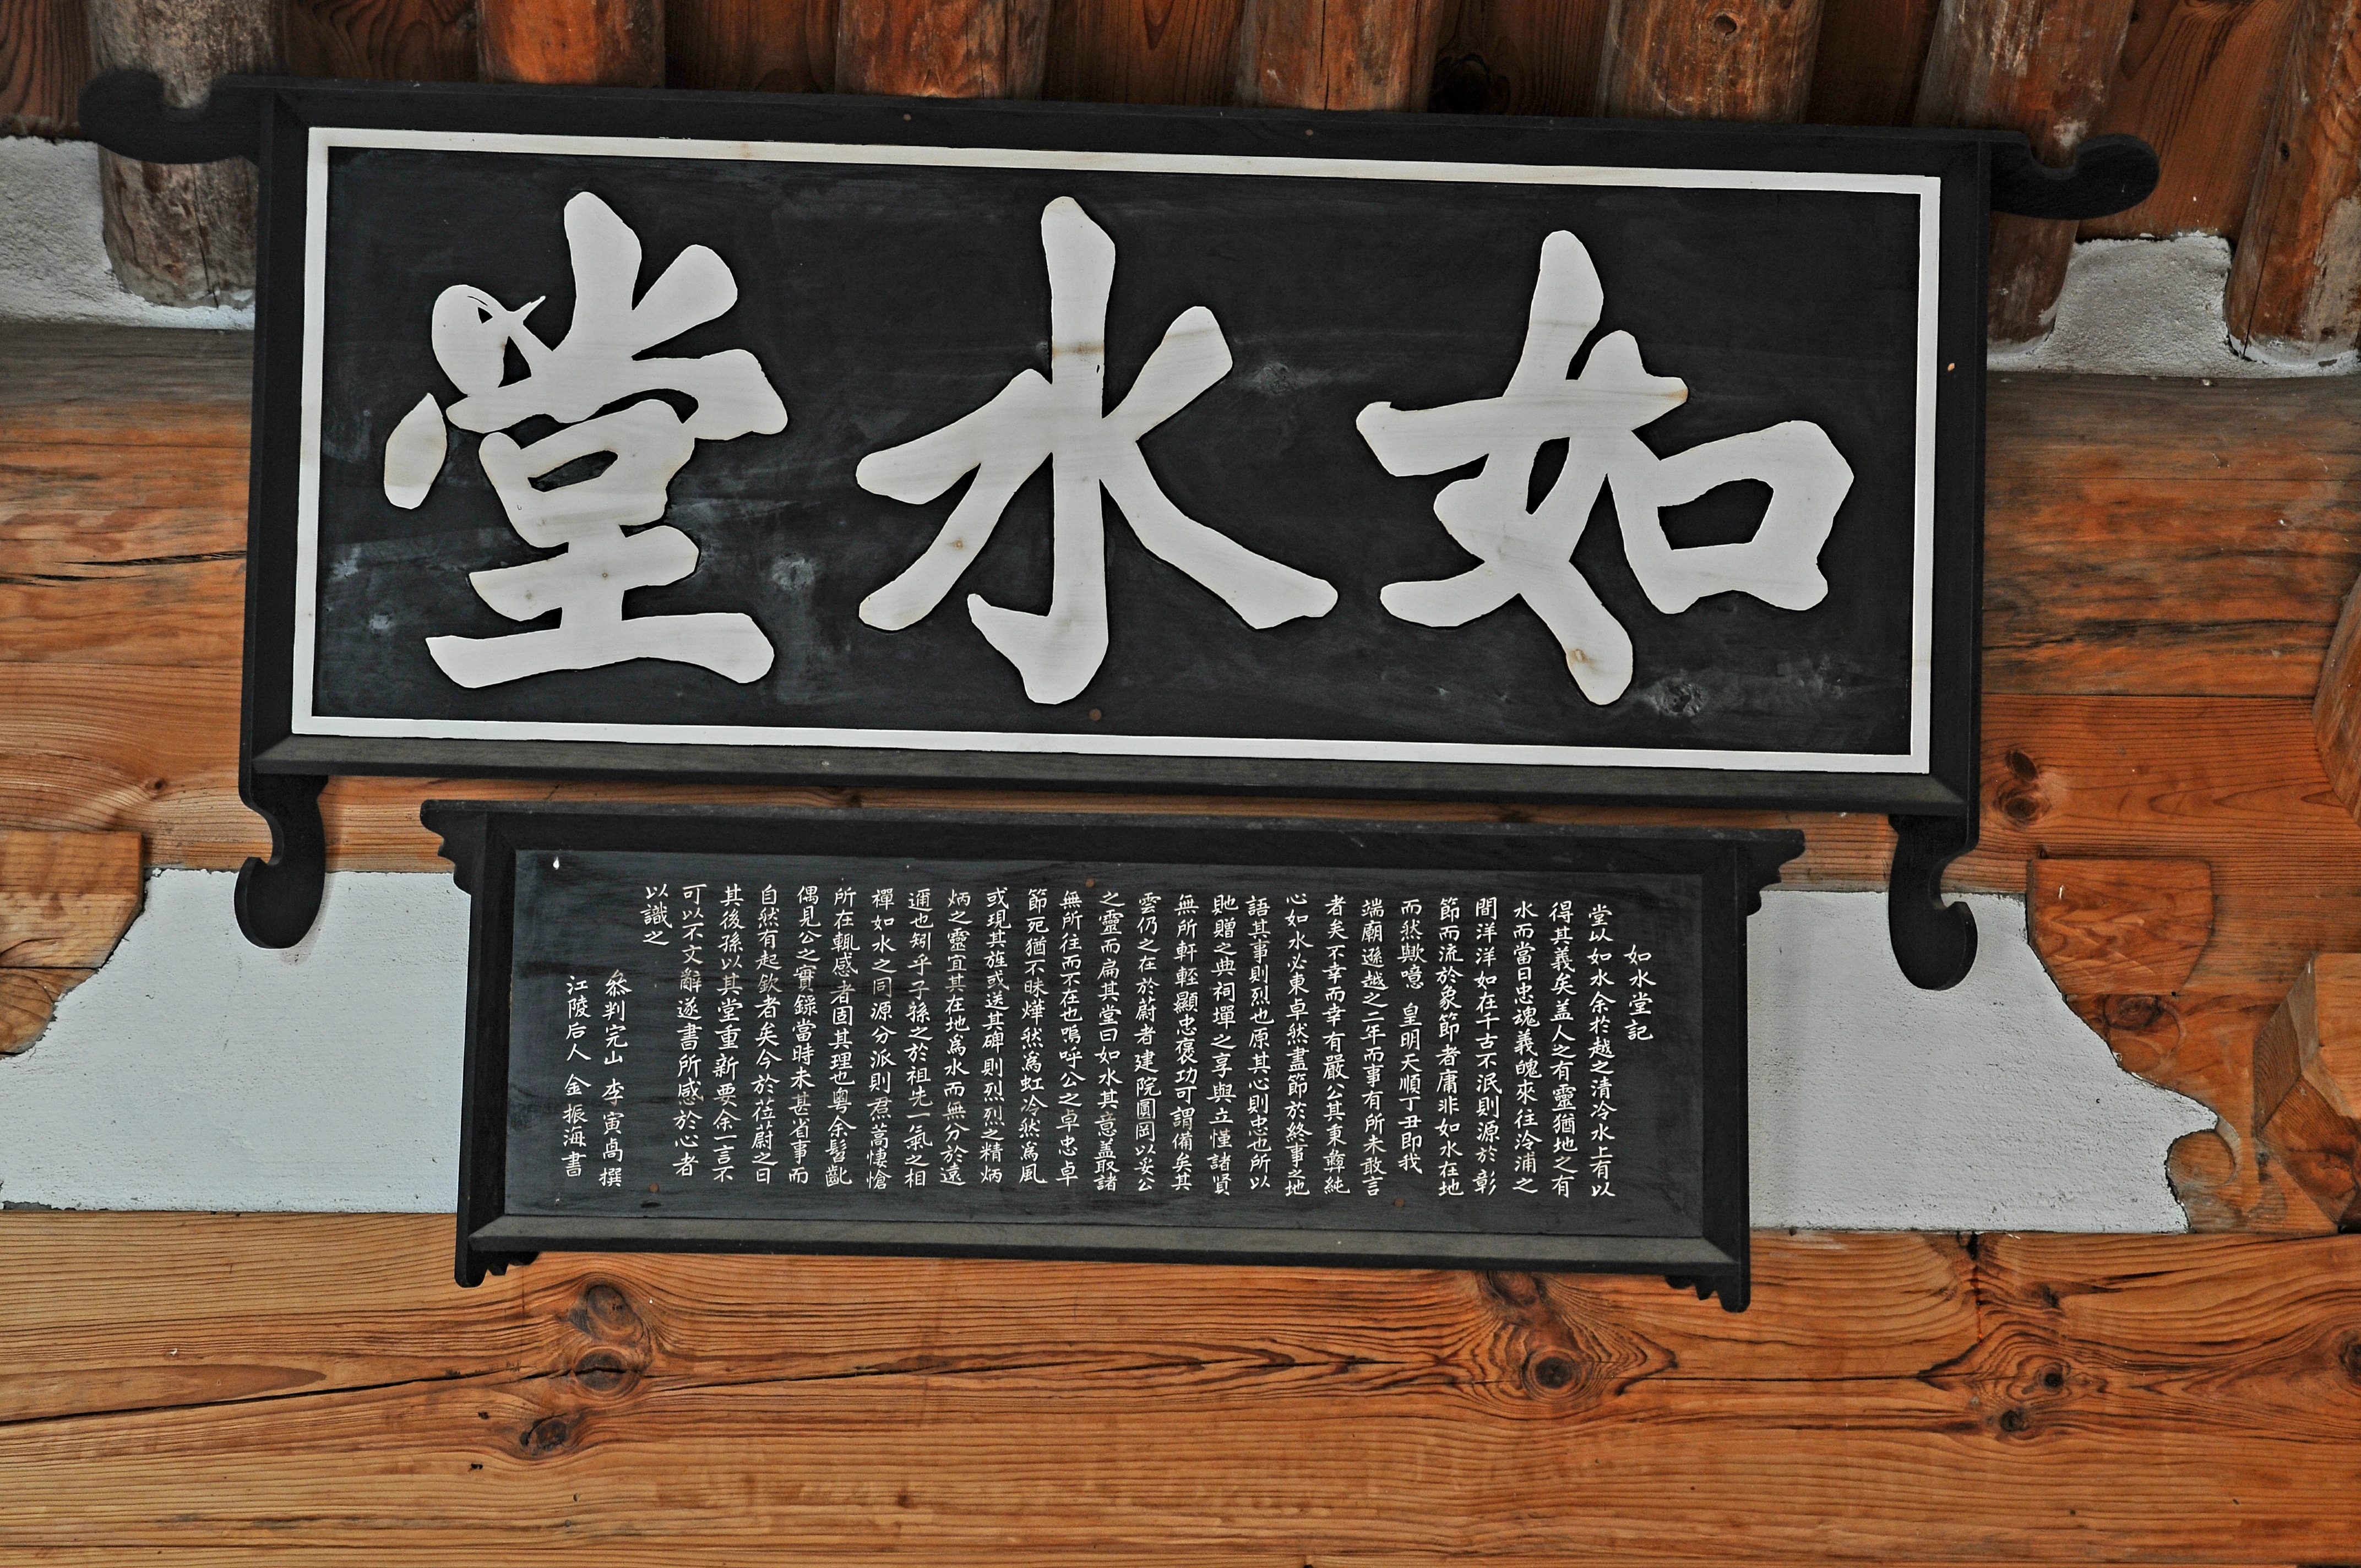 如水堂
如水堂記
堂以如水余於越之清冷水上有以
得其義矣盖人之有靈猶地之有
水而當日忠魂義魄來往泠浦之
間洋洋如在千古不泯則源於彰
節而流於象節者庸非如水在地
而然歟噫 皇明天順丁丑即我
端廟遜越之二年而事有所未敢言
者矣不幸而幸有嚴公其秉彜純
心如水必東卓然盡節於終事之地
語其事則烈也原其心則忠也所以
貤贈之典祠墠之享與立慬諸賢
無所軒輊顯忠褒功可謂備矣其
雲仍之在於蔚者建院圓岡以妥公
之靈而扁其堂曰如水其意盖取諸
無所往而不在也嗚呼公之卓忠卓
節死猶不昧燁然爲虹冷然爲風
或現其旌或送其碑則烈烈之精炳
炳之靈宜其在地爲水而無分於遠
邇也矧乎子孫之於祖先一氣之相
禪如水之同源分派則焄蒿悽愴
所在輒感者固其理也粤余髫齔
偶見公之實錄當時未甚省事而
自然有起欽者矣今於莅蔚之日
其後孫以其堂重新要余一言不
可以不文辭遂書所感於心者
以識之
叅判完山 李寅卨 撰
江陵后人 金振海 書